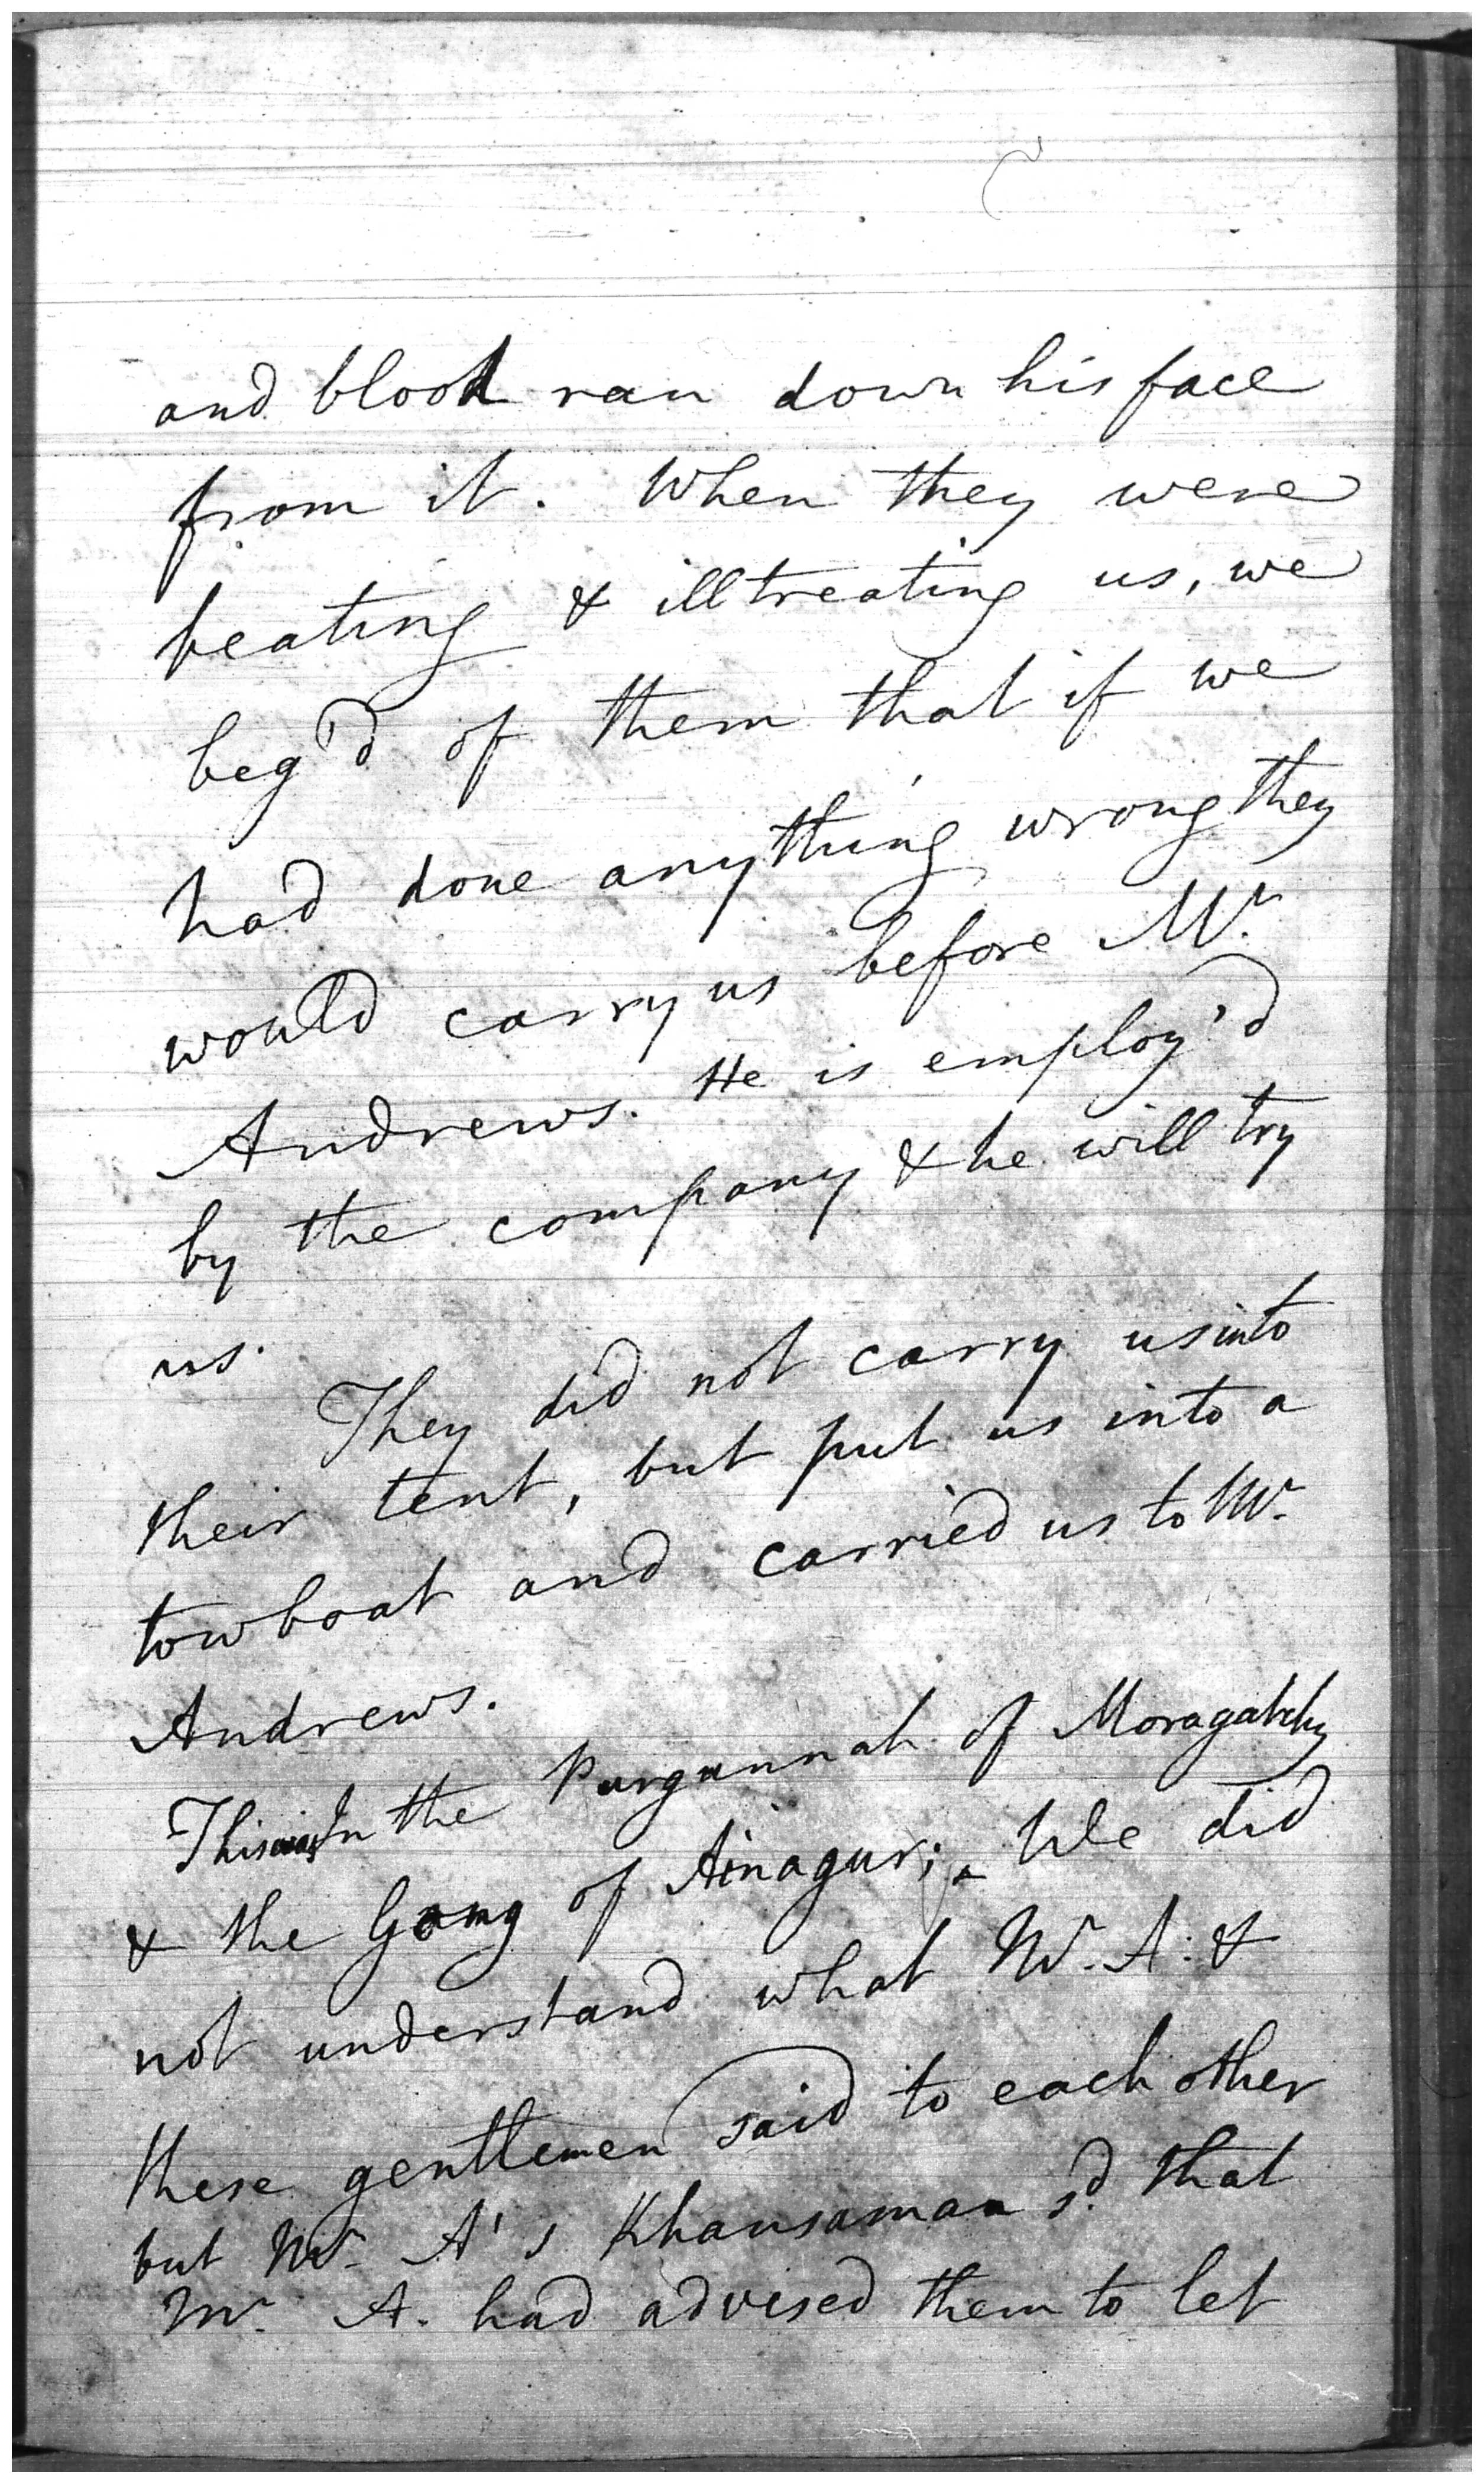 and blood ran down his face
from it. When they were
beating & illtreating us, we
beg'd of them that if we
had done anything wrong they
would carry us before Mr.
Andrews. He is employ'd
by the company & he will try
us.
They did not carry us into
their tent, but put us into a
towboat and carried us to Mr.
Andrews.
This was In the Purgunnah of
& the Gong of Ainagur; We did
not understand what Mr. A: &
these gentlemen said to each other
but Mr. A's Khansamaa sd. that
Mr. A. had advised them to let